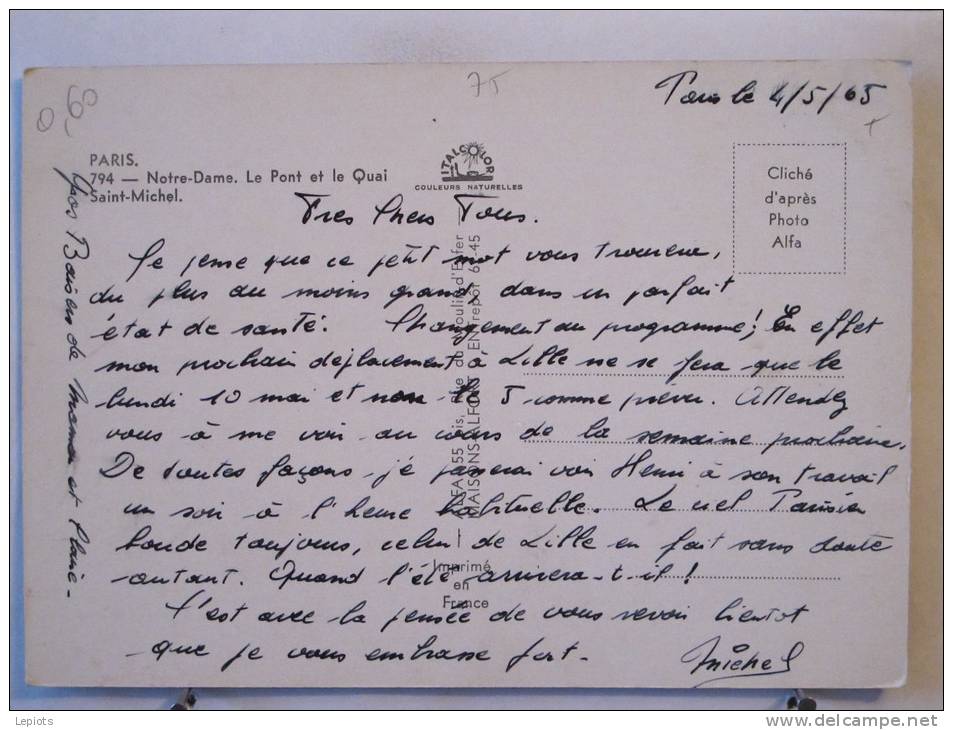 75
Paris le 4/5/65
PARIS.
794 — Notre-Dame. Le Pont et le Quai
Saint-Michel.
ITALCOLOR
COULEURS NATURELLES
Cliché
d'après
Photo
Alfa
Très Chers Tous.
Je pense que ce petit mot vous trouvera,
du plus au moins grand, dans un parfait
état de santé. Changement au programme! En effet
mon prochain déplacement à Lille ne se fera que le
lundi 10 mai et non le 5 comme prévu. Attendez
vous à me voir au cours de la semaine prochaine.
De toutes façons je passerai voir Henri à son travail
un soir à l'heure habituelle. Le ciel Parisien
boude toujours, celui de Lille en fait sans doute
autant. Quand l'été arrivera-t-il!
C'est avec la pensée de vous revoir bientôt
que je vous embrasse fort.
Michel
Gros Baisers de Maman et
Moulin d'Enfer
MAISONS-ALFORT Entrepôt
Imprimé
en
France
Lepiots
www.delcampe.net